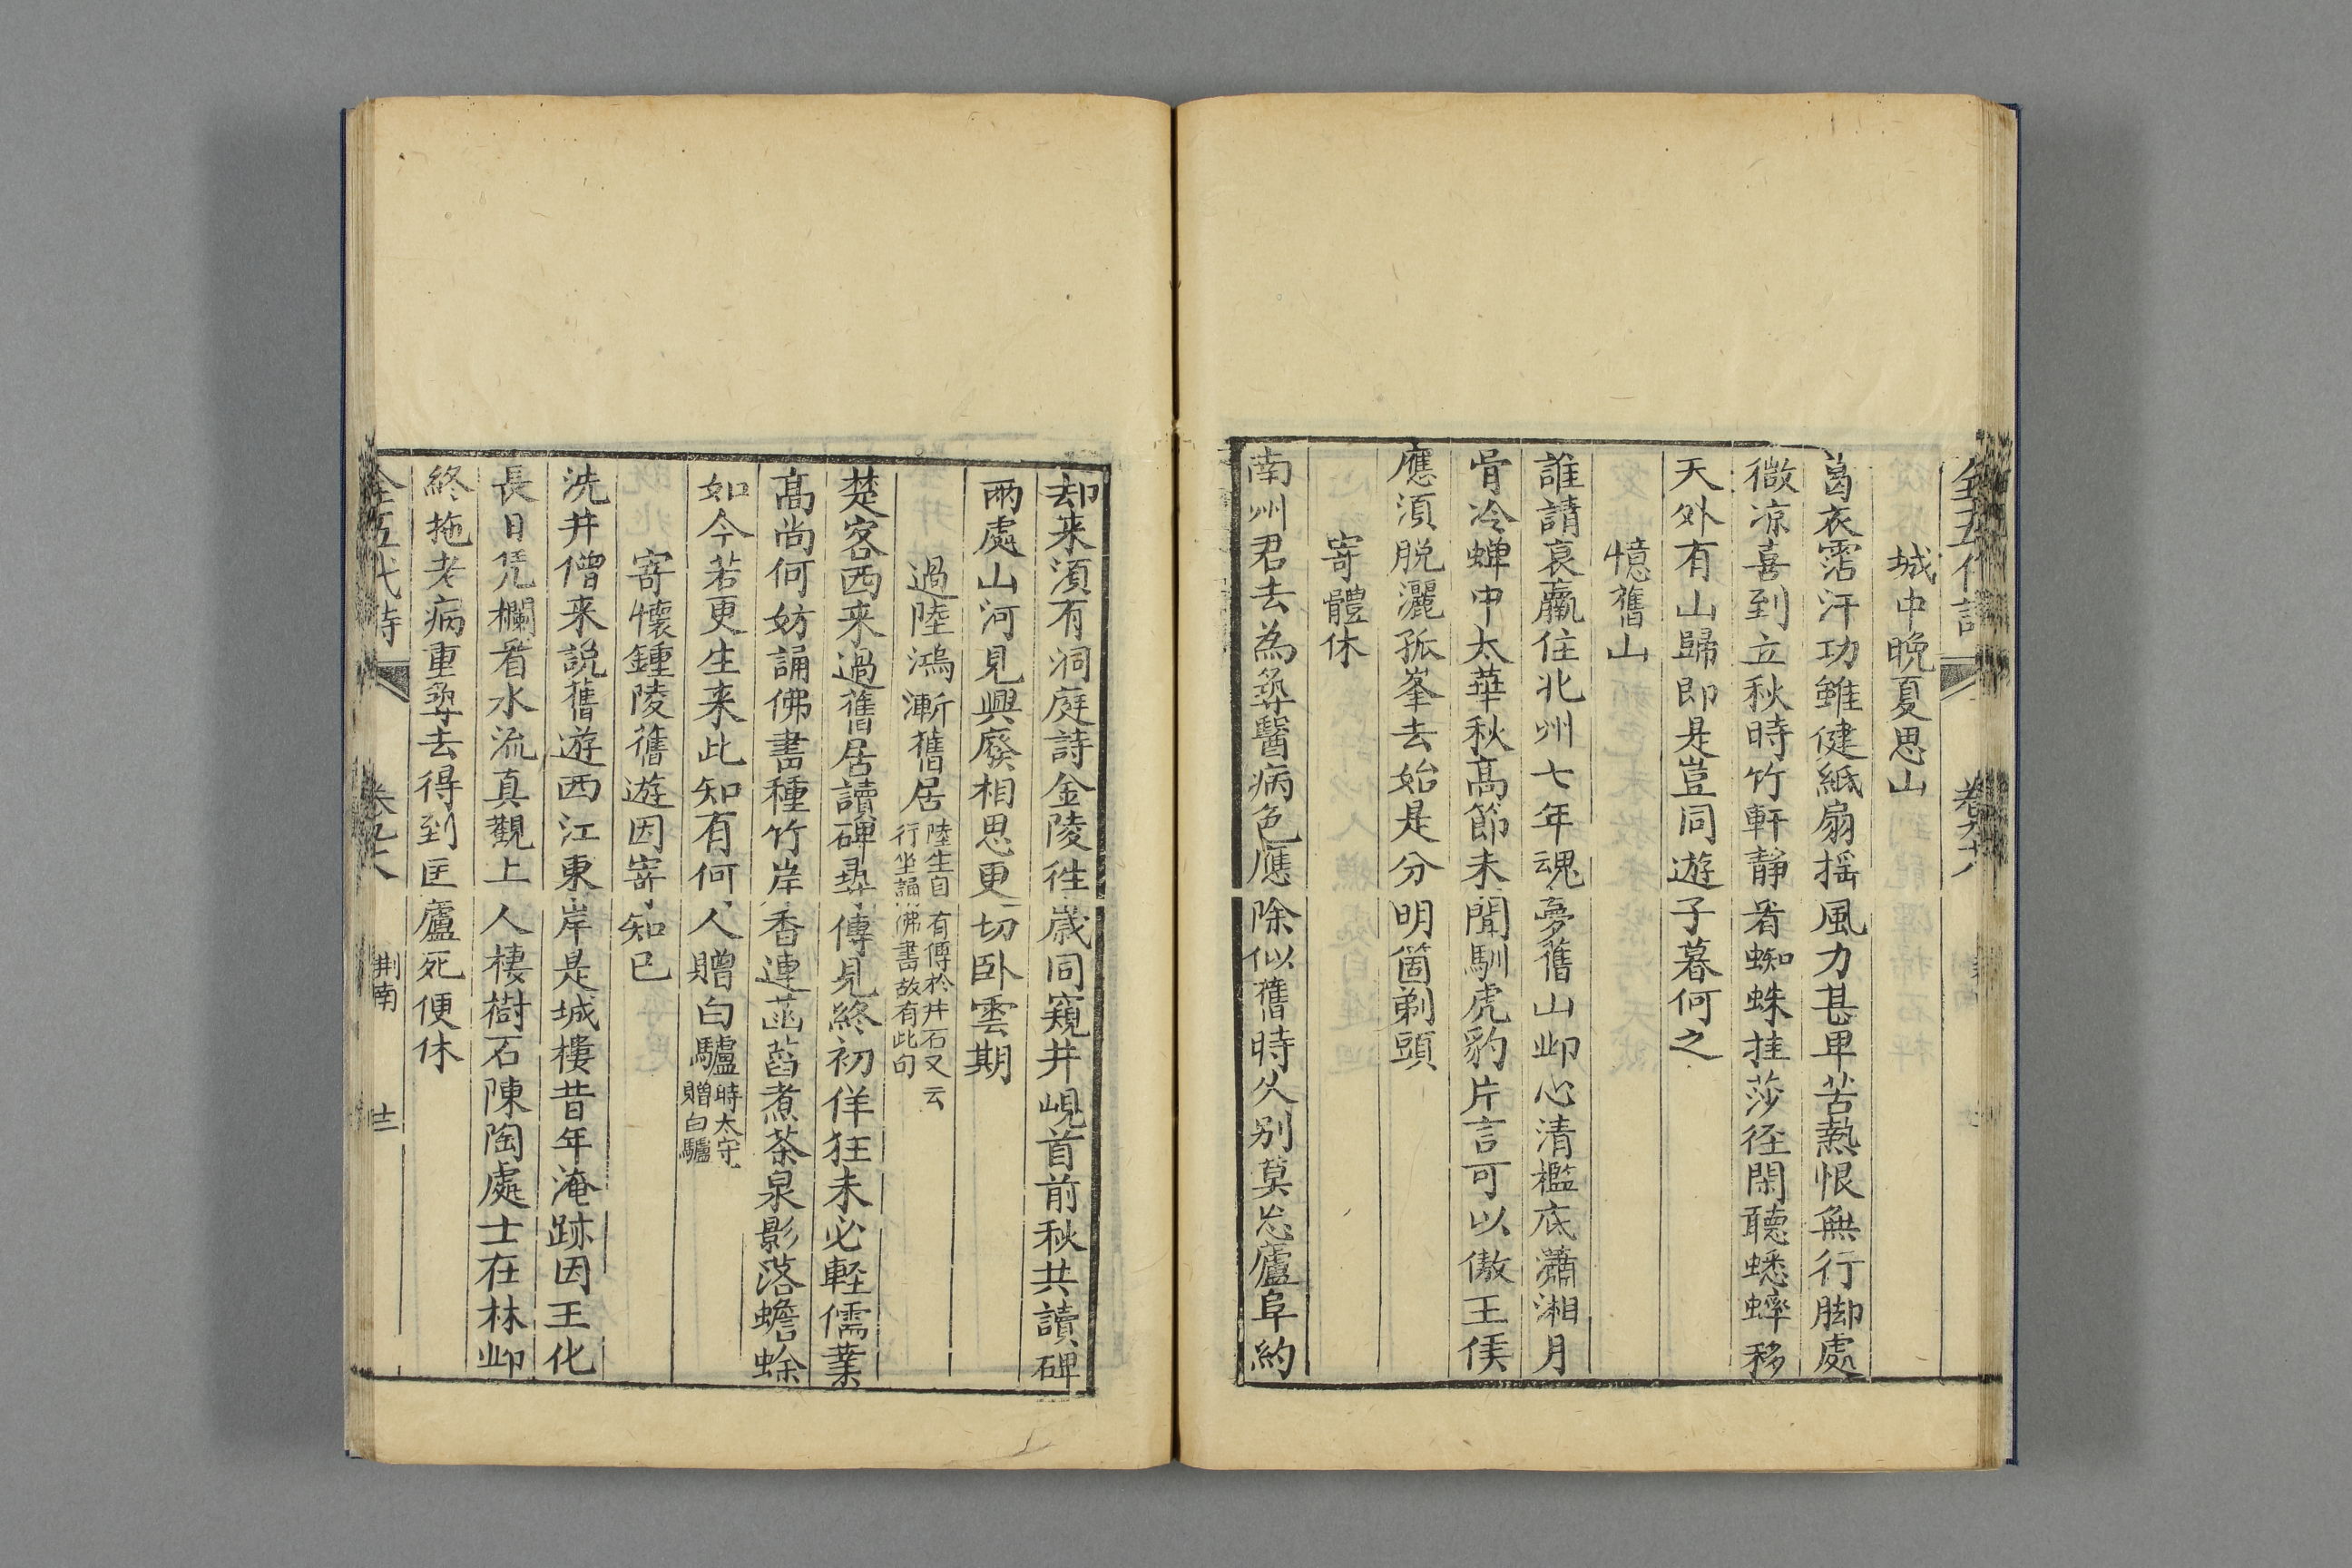 城中晩夏思山
葛衣霑汗功雖健紙扇揺風力甚卑苦熱恨無行脚處
微凉喜到立秋時竹軒静看蜘蛛挂莎徑閑聽蟋蟀移
天外有山歸即是豈同遊子暮何之
憶舊山
誰請哀羸住北州七年魂夢舊山丘心清檻底瀟湘月
骨冷蟬中太華秋髙節未聞馴虎豹片言可以傲王侯
應須脱灑孤峯去始是分明箇剃頭
寄體休
南州君去為㝷醫病色應除似舊時久别莫忘廬阜約
却来須有洞庭詩金陵徃歲同窺井峴首前秋共讀碑
兩處山河見興廢相思更切卧雲期
過陸鴻漸舊居陸生自有傳於井石又云行坐誦佛書故有此句
楚客西来過舊居讀碑㝷傳見終初佯狂未必輕儒業
髙尚何妨誦佛書種竹岸香連菡萏煮茶泉影落蟾蜍
如今若更生来此知有何人贈白驢時太守贈白驢
寄懷鍾陵舊遊因寄知已
洗井僧来説舊遊西江東岸是城樓昔年淹跡因王化
長日凭欄看水流真觀上人棲樹石陳陶處士在林丘
終拖老病重㝷去得到匡廬死便休
全五代詩 荆南 十二